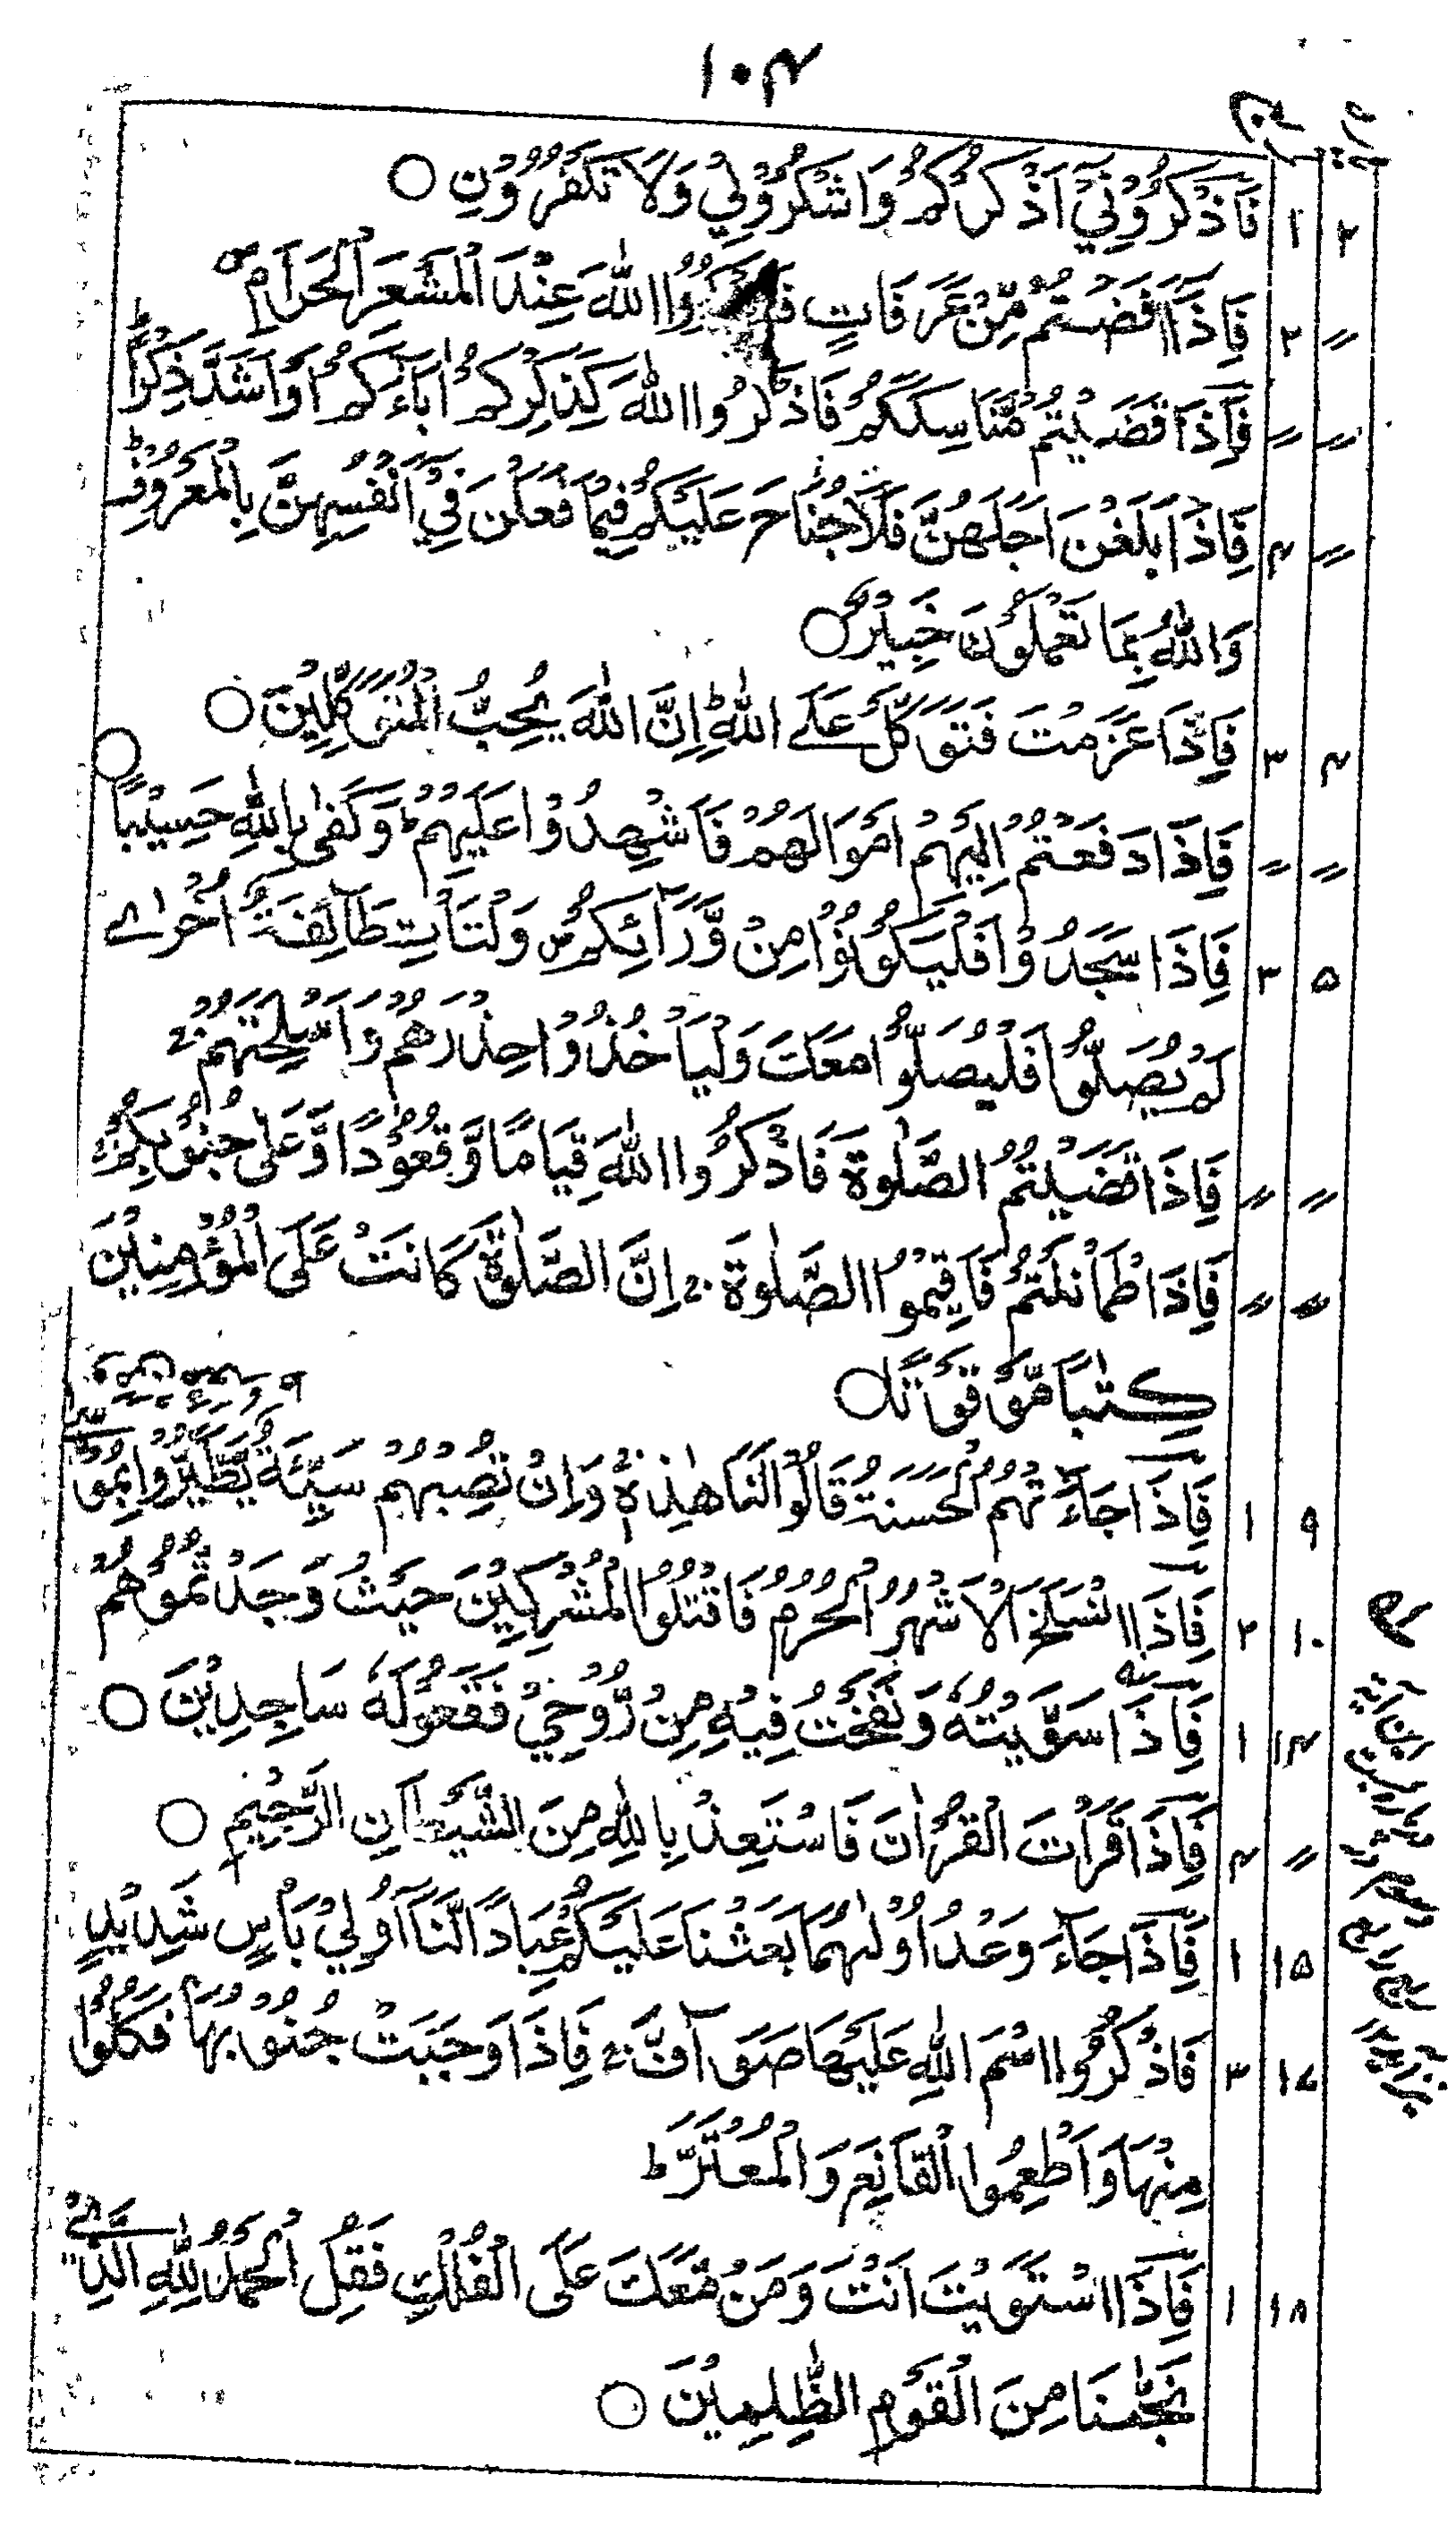 ۱۰۴
۲ ۱ فَاذْكُرُوْنِيْٓ اَذْكُرْكُمْ وَاشْكُرُوْلِيْ وَلَا تَكْفُرُوْنِ ○
〃 ۲ فَاِذَآ اَفَضْتُمْ مِّنْ عَرَفَاتٍ فَاذْكُرُوا اللّٰهَ عِنْدَ الْمَشْعَرِ الْحَرَامِ ص
〃 〃 فَاِذَا قَضَيْتُمْ مَّنَاسِكَكُمْ فَاذْكُرُوا اللّٰهَ كَذِكْرِكُمْ اٰبَآءَكُمْ اَوْ اَشَدَّ ذِكْرًا ط
〃 ۴ فَاِذَا بَلَغْنَ اَجَلَهُنَّ فَلَا جُنَاحَ عَلَيْكُمْ فِيْمَا فَعَلْنَ فِيْٓ اَنْفُسِهِنَّ بِالْمَعْرُوْفِ ط
وَاللّٰهُ بِمَا تَعْمَلُوْنَ خَبِيْرٌ ○
۴ ۳ فَاِذَا عَزَمْتَ فَتَوَكَّلْ عَلَے اللّٰهِ ط اِنَّ اللّٰهَ يُحِبُّ الْمُتَوَكِّلِيْنَ ○
〃 〃 فَاِذَا دَفَعْتُمْ اِلَيْهِمْ اَمْوَالَهُمْ فَاَشْهِدُوْا عَلَيْهِمْ ط وَكَفٰى بِاللّٰهِ حَسِيْبًا ○
۵ ۳ فَاِذَا سَجَدُوْا فَلْيَكُوْنُوْا مِنْ وَّرَآئِكُمْ ص وَلْتَاْتِ طَآئِفَةٌ اُخْرٰے
لَمْ يُصَلُّوْا فَلْيُصَلُّوْا مَعَكَ وَلْيَاْخُذُوْا حِذْرَهُمْ وَاَسْلِحَتَهُمْ ج
〃 〃 فَاِذَا قَضَيْتُمُ الصَّلٰوةَ فَاذْكُرُوا اللّٰهَ قِيَامًا وَّقُعُوْدًا وَّعَلٰى جُنُوْبِكُمْ ج
〃 〃 فَاِذَا اطْمَاْنَنْتُمْ فَاَقِيْمُوا الصَّلٰوةَ ج اِنَّ الصَّلٰوةَ كَانَتْ عَلَى الْمُؤْمِنِيْنَ
كِتٰبًا مَّوْقُوْتًا ○
۹ ۱ فَاِذَا جَآءَتْهُمُ الْحَسَنَةُ قَالُوْا لَنَا هٰذِهٖ ج وَاِنْ تُصِبْهُمْ سَيِّئَةٌ يَّطَّيَّرُوْا بِمُوْسٰى
۱۰ ۲ فَاِذَا انْسَلَخَ الْاَشْهُرُ الْحُرُمُ فَاقْتُلُوا الْمُشْرِكِيْنَ حَيْثُ وَجَدْتُّمُوْهُمْ
۱۴ ۱ فَاِذَا سَوَّيْتُهٗ وَنَفَخْتُ فِيْهِ مِنْ رُّوْحِيْ فَقَعُوْلَهٗ سَاجِدِيْنَ ○
〃 ۴ فَاِذَا قَرَاْتَ الْقُرْاٰنَ فَاسْتَعِذْ بِاللّٰهِ مِنَ الشَّيْطَانِ الرَّجِيْمِ ○
۱۵ ۱ فَاِذَا جَآءَ وَعْدُ اُوْلٰهُمَا بَعَثْنَا عَلَيْكُمْ عِبَادًا لَّنَآ اُولِيْ بَاْسٍ شَدِيْدٍ
۱۷ ۳ فَاذْكُرُوا اسْمَ اللّٰهِ عَلَيْهَا صَوَآفَّ ج فَاِذَا وَجَبَتْ جُنُوْبُهَا فَكُلُوْا
مِنْهَا وَاَطْعِمُوا الْقَانِعَ وَالْمُعْتَرَّ ط
۱۸ ۱ فَاِذَا اسْتَوَيْتَ اَنْتَ وَمَنْ مَّعَكَ عَلَى الْفُلْكِ فَقُلِ الْحَمْدُ لِلّٰهِ الَّذِيْ
نَجّٰىنَا مِنَ الْقَوْمِ الظّٰلِمِيْنَ ○